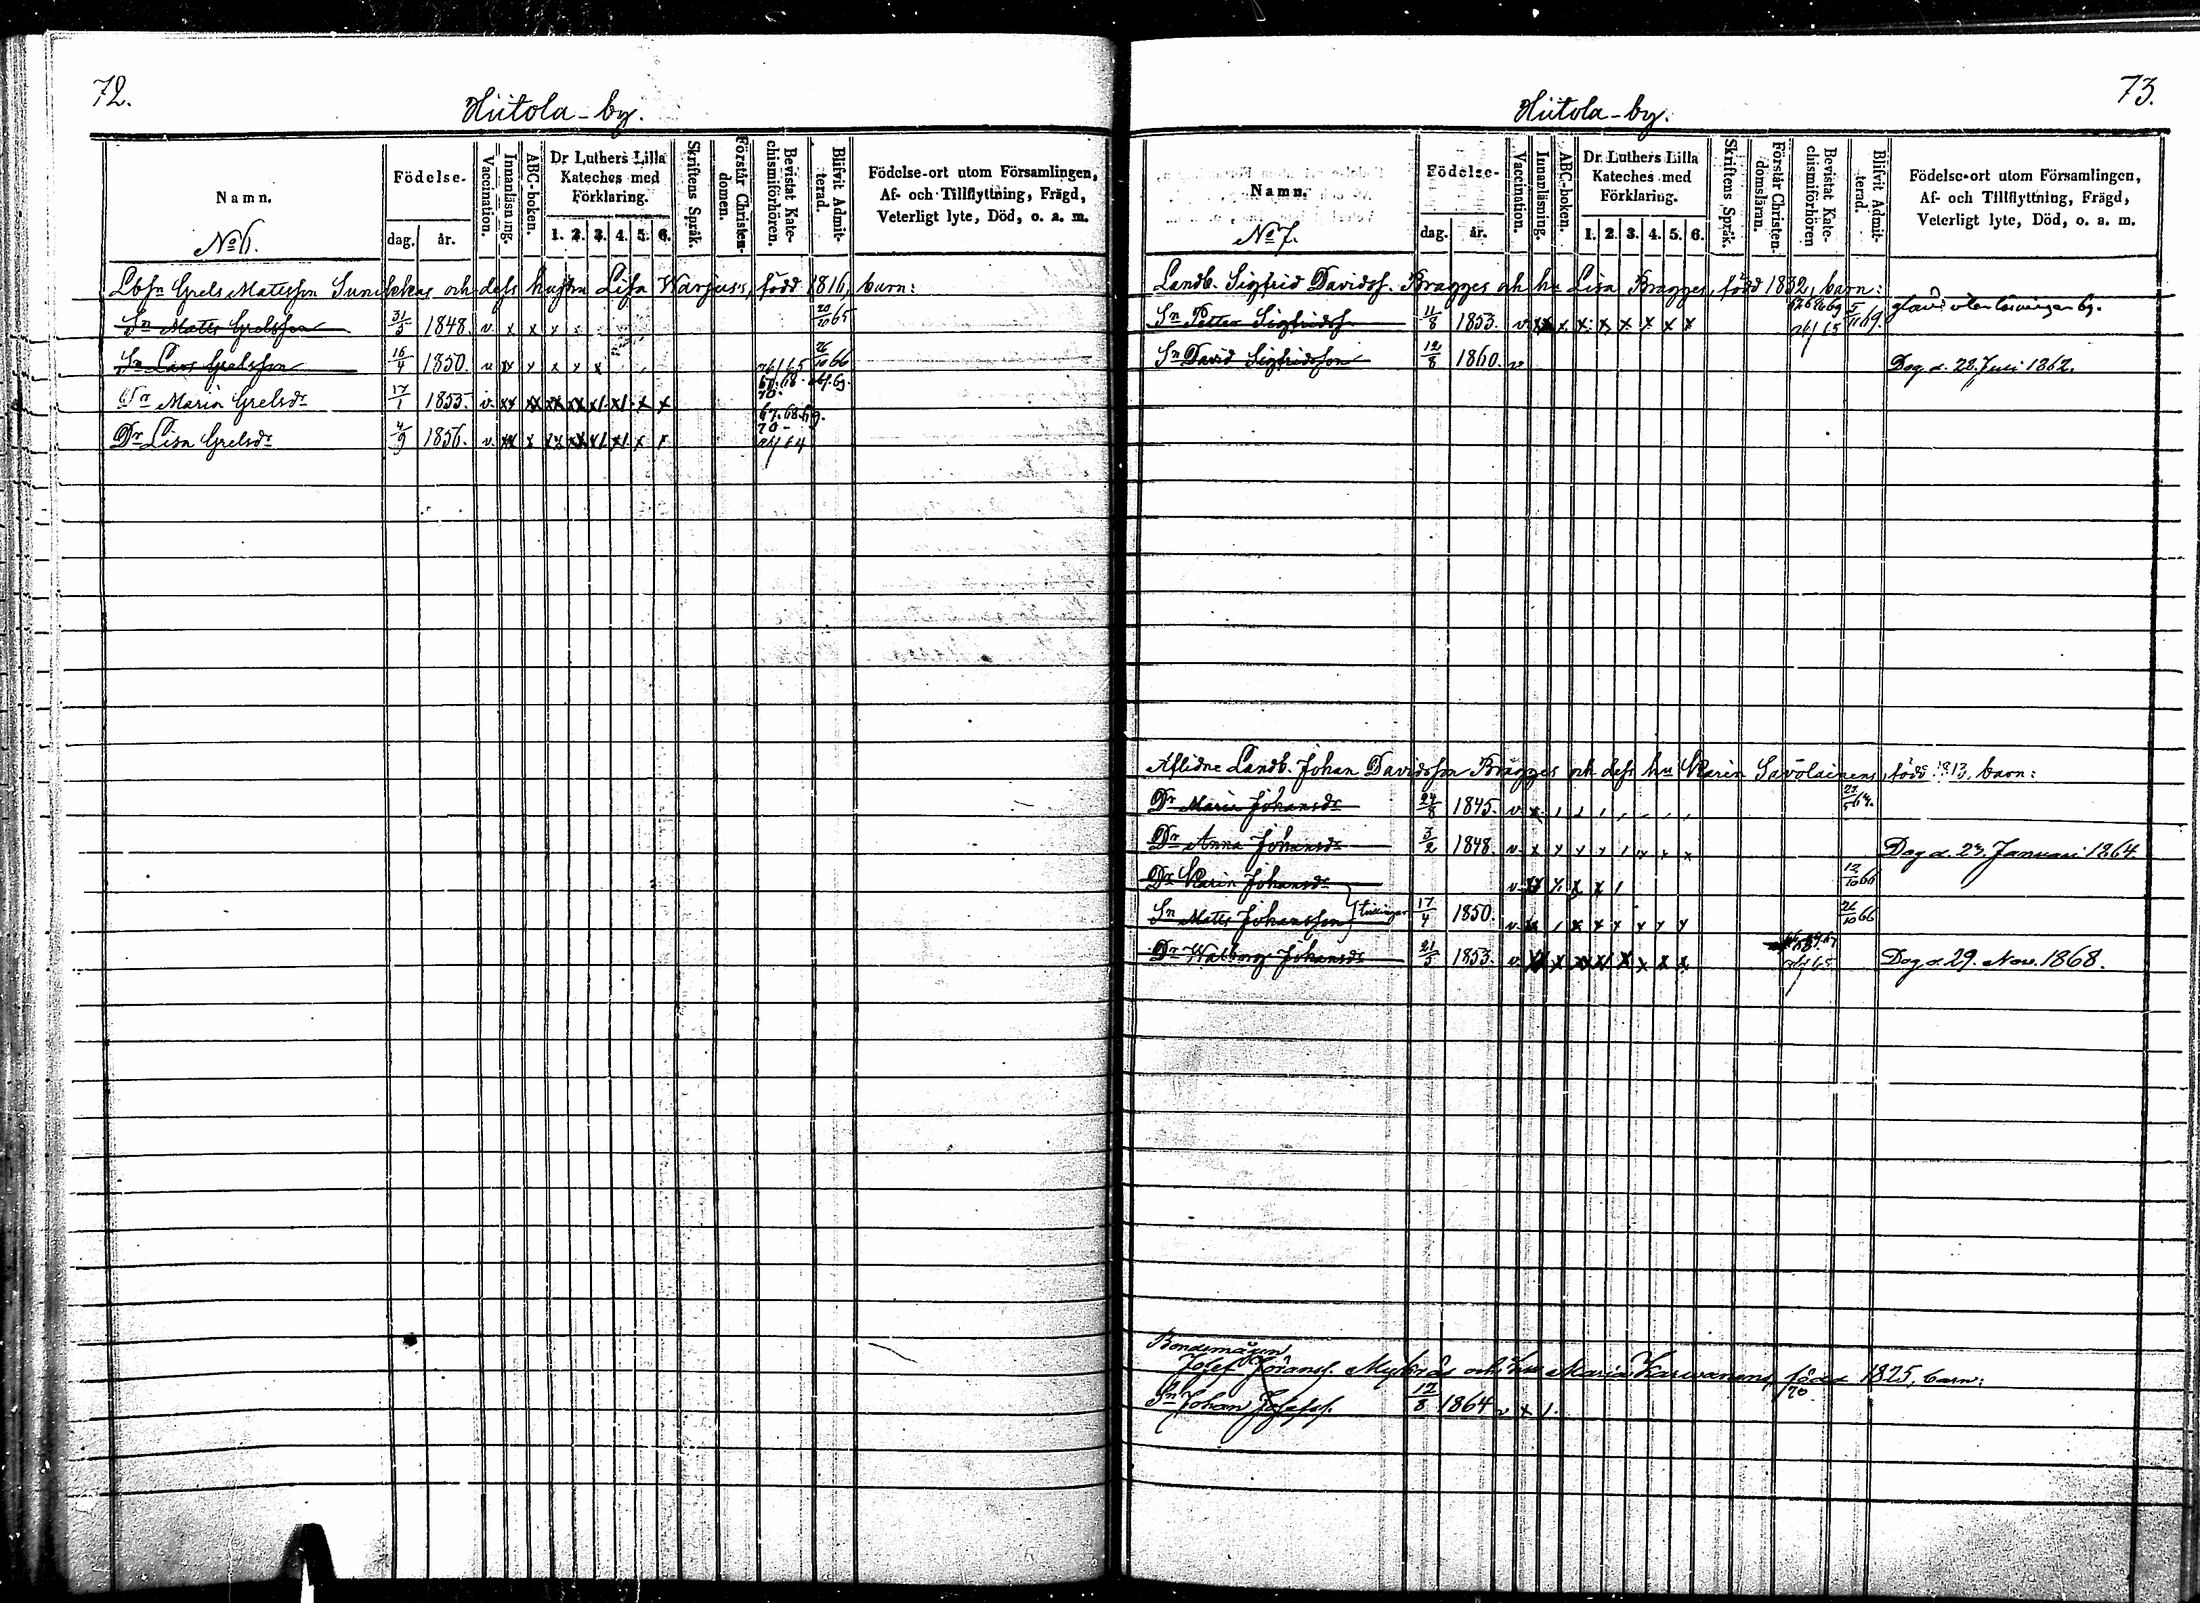 72.
Hiitola-by.
Namn.
No 6.
Födelse.
dag.
år.
Vaccination.
Innanläsning.
ABC-boken.
Dr Luthers Lilla
Kateches med
Förklaring.
1. 2. 3. 4. 5. 6.
Skriftens Språk.
Förstår Christendomen.
Bevistat Katechismiförhören.
Blifvit Admitterad.
Födelse-ort utom Församlingen,
Af- och Tillflyttning, Frägd,
Veterligt lyte, Död, o. a. m.
Grels Matsson och dess hustru Lisa född 1816, barn:
Sn Matts Grelsson 31/5 1848. v x x x x 22/10 65
Sn Lars Grelsson 16/4 1850. v x x x x x 65 26/10 66
Dr Maria Grelsdr 17/1 1853. v. xx xx xx xx x x x x 67. 68. 69. 70.
Dr Lisa Grelsdr 4/9 1856. v. xx x xx xx x x x x 67. 68. 69. 70 64
73.
Hiitola-by.
Namn.
No 7.
Födelse-
dag.
år.
Vaccination.
Innanläsning.
ABC-boken.
Dr Luthers Lilla
Kateches med
Förklaring.
1. 2. 3. 4. 5. 6.
Skriftens Språk.
Förstår Christendomsläran.
Bevistat Katechismiförhören
Blifvit Admitterad.
Födelse-ort utom Församlingen,
Af- och Tillflyttning, Frägd,
Veterligt lyte, Död, o. a. m.
Landb. Sigfrid Davidss. Bragges och hu Lisa Bragges, född 1832, barn:
Sn Petter Sigfridss. 11/8 1853. v xx x x x x x x x 65 5/11 69.
Sn David Sigfridsson 12/8 1860. v Dog d. 28. Juli 1862.
Aflidne Landb. Johan Davidsson Bragges och dess hu Karin Savolainens, född 1813, barn:
Dr Maria Johansdr 24/8 1845. v x 64.
Dr Anna Johansdr 3/2 1848. v x x x x x x x Dog d. 23. Januari 1864.
Dr Karin Johansdr v xx x x x 12/10 66
Sn Matts Johansson tvillingar 17/4 1850. v x x x x x x x 26/10 66
Dr Walborg Johansdr 21/5 1853. v xx x xx xx x x x x 65 Dog d. 29. Nov. 1868.
Bondemågen
Josef Göranss. och hu Maria född 1825, barn:
Sn Johan Josefss. 12/8 1864 v x 70